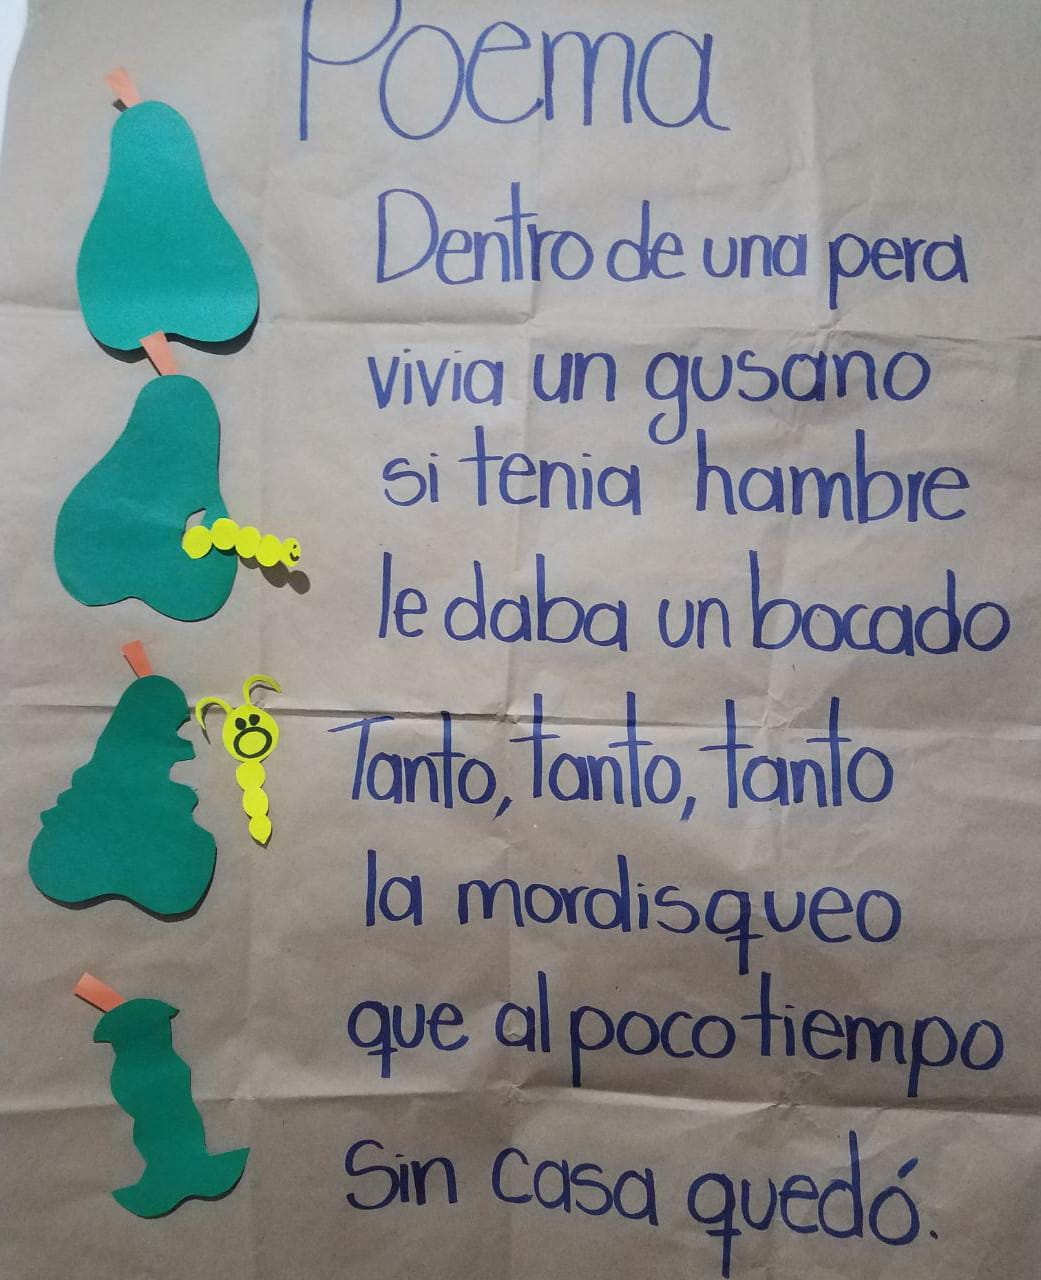 Poema
Dentro de una pera
vivia un gusano
si tenia hambre
le daba un bocado
Tanto, tanto, tanto
la mordisqueo
que al poco tiempo
Sin casa quedó.